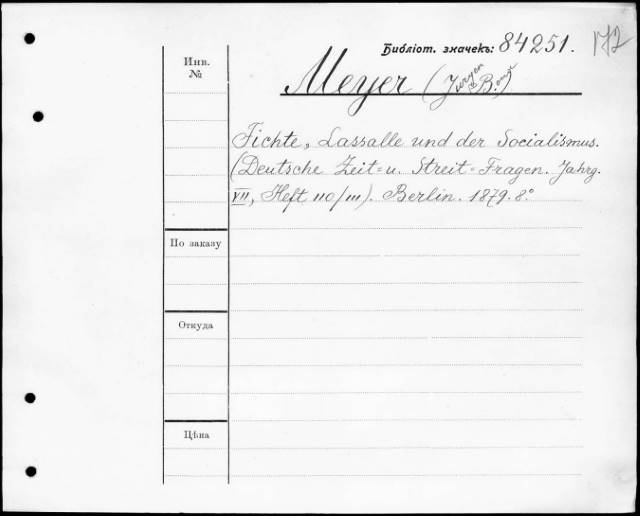 Библіот. значекъ: 84251. 172
Инв. №
Meyer (Jürgen B. Bona)
Fichte, Lassalle und der Socialismus.
(Deutsche Zeit= u. Streit=Fragen. Jahrg.
VII, Heft 110/111). Berlin. 1879. 8°.
По заказу
Откуда
Цѣна